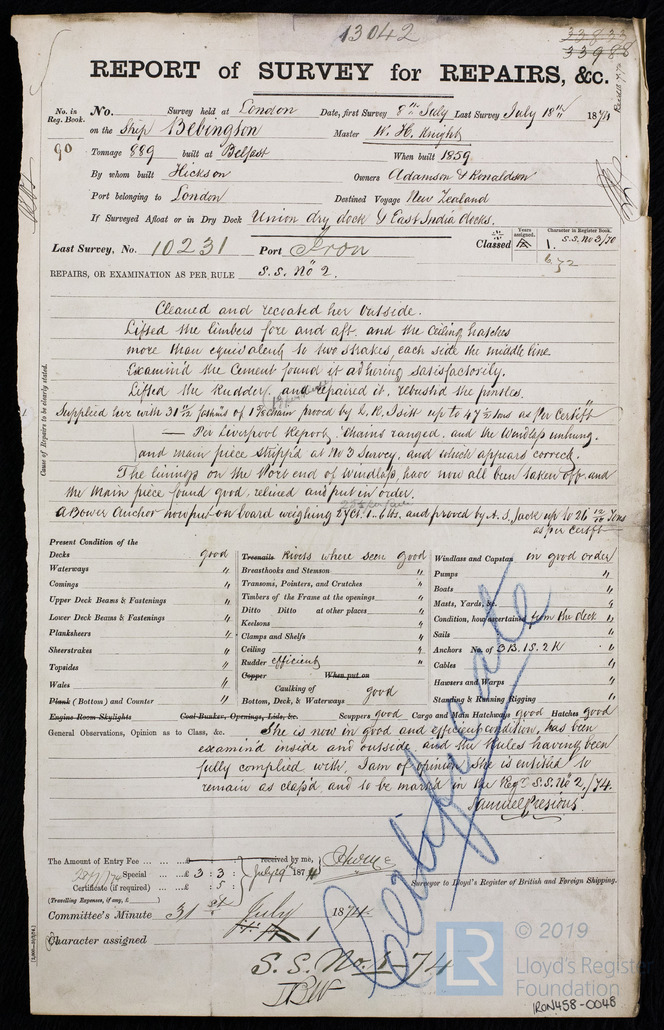 13042
33933
33988
REPORT of SURVEY for REPAIRS, &c.
No. in Reg. Book. No. Survey held at London Date, first Survey 8th July Last Survey July 18th 1874
90 on the Ship Bebington Master W. H. Knight
Tonnage 889 built at Belfast When built 1859
By whom built Hickson Owners Adamson & Ronaldson
Port belonging to London Destined Voyage New Zealand
If Surveyed Afloat or in Dry Dock Union dry dock & East India docks.
Last Survey, No. 10231 Port Iron Classed Years assigned. Character in Register Book. 1. S.S. No 3/70
REPAIRS, OR EXAMINATION AS PER RULE S.S. No 2. 6,72
Cause of Repairs to be clearly stated.
Cleaned and recoated her outside.
Lifted the limbers fore and aft, and the Ceiling hatches
more than equivalent to two strakes, each side the middle line.
Examin'd the Cement found it adhering satisfactorily.
Lifted the Rudder, and repaired it, rebushd the pintles.
Supplied her with 31 fathms of 1 chain proved by L. R. Isitt up to 47 tons as Per Certift
— Per Liverpool Report, Chains ranged, and the Windlass unhung.
and main piece stripp'd at No 3 Survey, and which appears correct.
The linings on the Port end of Windlass, have now all been taken off and
the Main piece found good, relined and put in order.
A Bower Anchor now put on board weighing 27 Ct. 1. 6 lbs. and proved by A. S. Jack up to 26 12/20 Tons
as per Certft
Present Condition of the
Decks good Treenails Rivets where seen good Windlass and Capstan in good order
Waterways " Breasthooks and Stemson " Pumps "
Comings " Transoms, Pointers, and Crutches " Boats "
Upper Deck Beams & Fastenings " Timbers of the Frame at the openings " Masts, Yards, &c. "
Lower Deck Beams & Fastenings " Ditto Ditto at other places " Condition, how ascertained from the deck "
Planksheers " Keelsons " Sails "
Sheerstrakes " Clamps and Shelfs " Anchors No. of 3B. 1S. 2K "
Topsides " Ceiling " Cables "
Wales " Rudder efficient " Hawsers and Warps "
Plank (Bottom) and Counter " Copper When put on Standing & Running Rigging "
Caulking of Bottom, Deck, & Waterways good
Engine Room Skylights Coal Bunker, Openings, Lids, &c. Scuppers good Cargo and Main Hatchways good Hatches good
General Observations, Opinion as to Class, &c. She is now in good and efficient condition, has been
examin'd inside and outside, and the Rules having been
fully complied with, I am of opinion she is entitled to
remain as class'd and to be mark'd in the Regr. S.S. No 2./74.
Samuel Presious
Certificate
The Amount of Entry Fee ... ... £ received by me,
Special ... ... £ 3 : 3 : July 29 1874
Certificate (if required) ... : 5 :
(Travelling Expenses, if any, £ )
Surveyor to Lloyd's Register of British and Foreign Shipping.
Committee's Minute 31st July 1874
Character assigned 1
S.S. No. 1-74
JBW
LR
© 2019
Lloyd's Register
Foundation
IRON458-0048